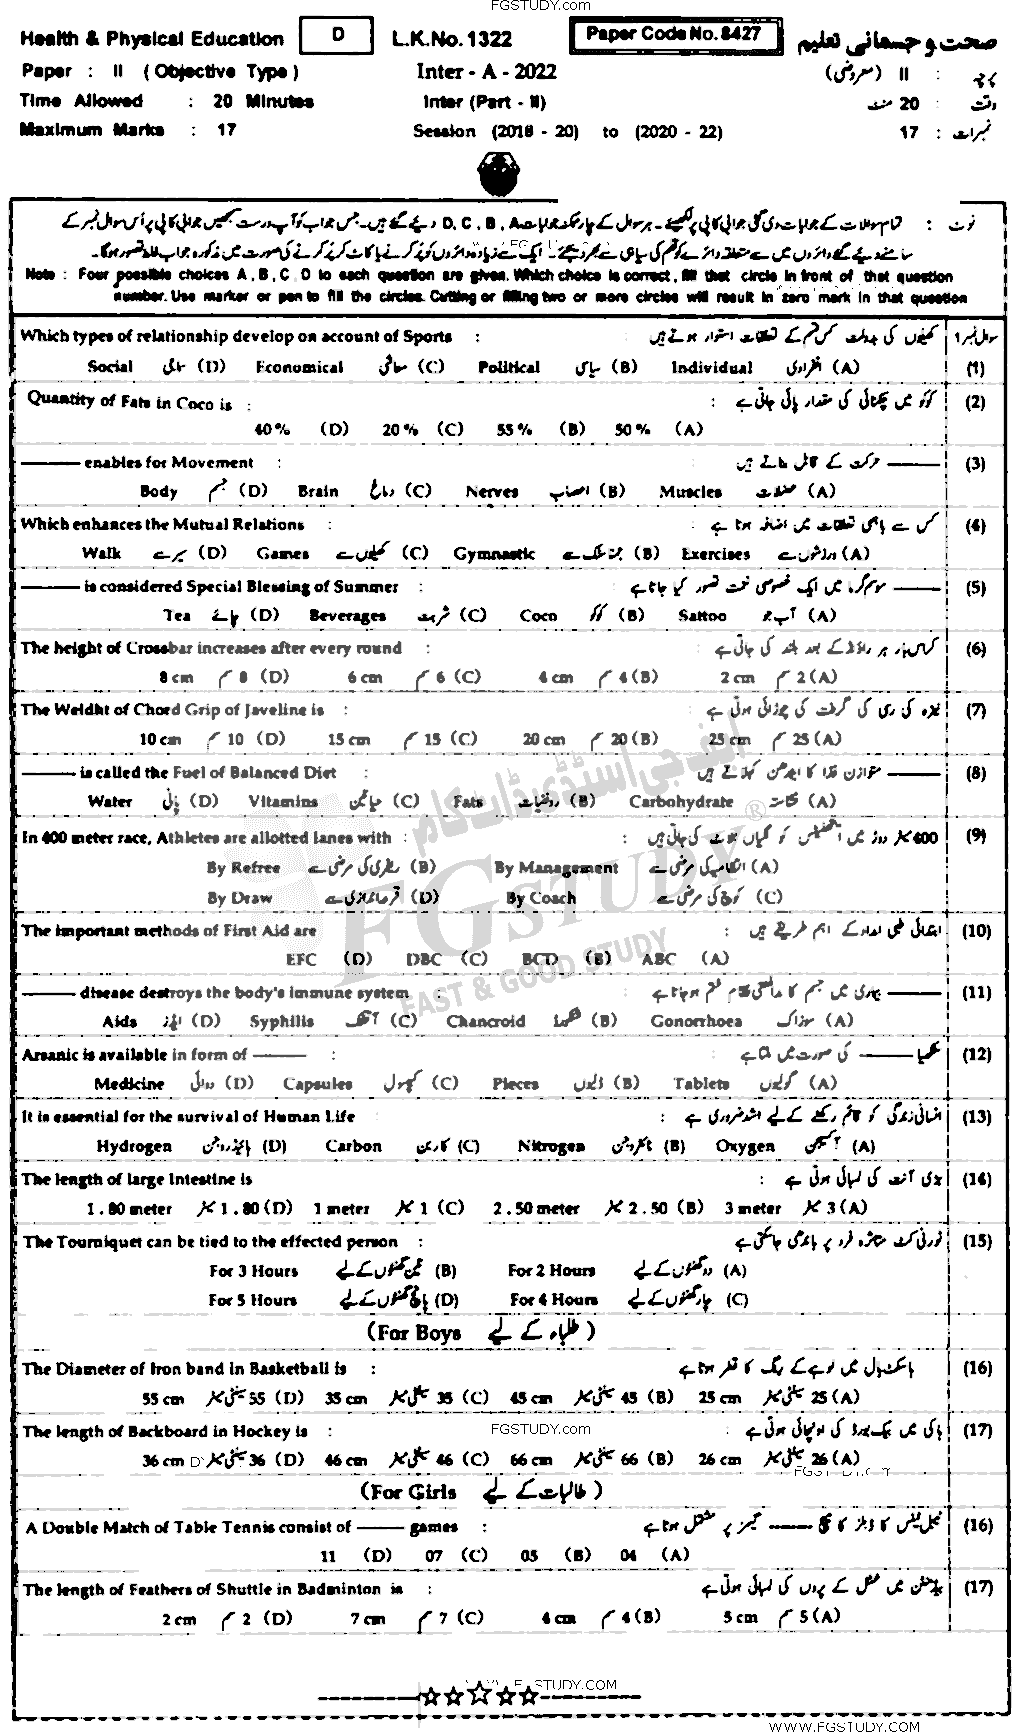 FGSTUDY.com
Health & Physical Education D L.K.No. 1322 Paper Code No. 8427 صحت و جسمانی تعلیم
Paper : II ( Objective Type ) Inter - A - 2022 پرچہ : II (معروضی)
Time Allowed : 20 Minutes Inter (Part - II) وقت : 20 منٹ
Maximum Marks : 17 Session (2018 - 20) to (2020 - 22) نمبرات : 17
نوٹ : تمام سوالات کے جوابات دی گئی جوابی کاپی پر لکھیئے۔ ہر سوال کے چار ممکنہ جوابات D, C, B, A دیئے گئے ہیں۔ جس جواب کو آپ درست سمجھیں جوابی کاپی پر اُس سوال نمبر کے
سامنے دیئے گئے دائروں میں سے متعلقہ دائرے کو قلم کی سیاہی سے بھر دیجئے۔ ایک سے زیادہ دائروں کو پُر کرنے یا کاٹ کر پُر کرنے کی صورت میں مذکورہ جواب غلط تصور ہوگا۔
Note : Four possible choices A , B , C , D to each question are given. Which choice is correct , fill that circle in front of that question
number. Use marker or pen to fill the circles. Cutting or filling two or more circles will result in zero mark in that question
Which types of relationship develop on account of Sports : کھیلوں کی بدولت کس قسم کے تعلقات استوار ہوتے ہیں سوال نمبر 1
Social سماجی (D) Economical معاشی (C) Political سیاسی (B) Individual انفرادی (A) (1)
Quantity of Fats in Coco is : کوکو میں چکنائی کی مقدار پائی جاتی ہے : (2)
40 % (D) 20 % (C) 55 % (B) 50 % (A)
——— enables for Movement : ——— حرکت کے قابل بناتے ہیں (3)
Body جسم (D) Brain دماغ (C) Nerves اعصاب (B) Muscles عضلات (A)
Which enhances the Mutual Relations : کس سے باہمی تعلقات میں اضافہ ہوتا ہے (4)
Walk سیر سے (D) Games کھیلوں سے (C) Gymnastic جمناسٹک سے (B) Exercises ورزشوں سے (A)
——— is considered Special Blessing of Summer : ——— موسم گرما میں ایک خصوصی نعمت تصور کیا جاتا ہے (5)
Tea چائے (D) Beverages شربت (C) Coco کوکو (B) Sattoo آب جو (A)
The height of Crossbar increases after every round : کراس بار ہر راؤنڈ کے بعد بلند کی جاتی ہے : (6)
8 cm 8 سم (D) 6 cm 6 سم (C) 4 cm 4 سم (B) 2 cm 2 سم (A)
The Weidht of Chord Grip of Javeline is : نیزہ کی رسی کی گرفت کی چوڑائی ہوتی ہے : (7)
10 cm 10 سم (D) 15 cm 15 سم (C) 20 cm 20 سم (B) 25 cm 25 سم (A)
——— is called the Fuel of Balanced Diet : ——— متوازن غذا کا ایندھن کہلاتے ہیں (8)
Water پانی (D) Vitamins حیاتین (C) Fats روغنیات (B) Carbohydrate نشاستہ (A)
In 400 meter race, Athletes are allotted lanes with : 400 میٹر دوڑ میں ایتھلیٹس کو گلیاں الاٹ کی جاتی ہیں : (9)
By Refree ریفری کی مرضی سے (B) By Management انتظامیہ کی مرضی سے (A)
By Draw قرعہ اندازی سے (D) By Coach کوچ کی مرضی سے (C)
The important methods of First Aid are ابتدائی طبی امداد کے اہم طریقے ہیں : (10)
EFC (D) DBC (C) BCD (B) ABC (A)
——— disease destroys the body's immune system : ——— بیماری میں جسم کا مدافعتی نظام ختم ہو جاتا ہے (11)
Aids ایڈز (D) Syphilis آتشک (C) Chancroid (B) Gonorrhoea سوزاک (A)
Arsanic is available in form of ——— : سنکھیا ——— کی صورت میں ملتا ہے (12)
Medicine دوائی (D) Capsules کیپسول (C) Pieces ڈلیوں (B) Tablets گولیوں (A)
It is essential for the survival of Human Life : انسانی زندگی کو قائم رکھنے کے لیے اشد ضروری ہے : (13)
Hydrogen ہائیڈروجن (D) Carbon کاربن (C) Nitrogen نائٹروجن (B) Oxygen آکسیجن (A)
The length of large Intestine is بڑی آنت کی لمبائی ہوتی ہے : (14)
1.80 meter 1.80 میٹر (D) 1 meter 1 میٹر (C) 2.50 meter 2.50 میٹر (B) 3 meter 3 میٹر (A)
The Tourniquet can be tied to the effected person : ٹورنی کٹ متاثرہ فرد پر باندھی جا سکتی ہے (15)
For 3 Hours تین گھنٹوں کے لیے (B) For 2 Hours دو گھنٹوں کے لیے (A)
For 5 Hours پانچ گھنٹوں کے لیے (D) For 4 Hours چار گھنٹوں کے لیے (C)
(For Boys طلباء کے لیے )
The Diameter of Iron band in Basketball is : باسکٹ بال میں لوہے کے رنگ کا قطر ہوتا ہے (16)
55 cm 55 سینٹی میٹر (D) 35 cm 35 سینٹی میٹر (C) 45 cm 45 سینٹی میٹر (B) 25 cm 25 سینٹی میٹر (A)
FGSTUDY.com
The length of Backboard in Hockey is : ہاکی میں بیک بورڈ کی اونچائی ہوتی ہے : (17)
36 cm 36 سینٹی میٹر (D) 46 cm 46 سینٹی میٹر (C) 66 cm 66 سینٹی میٹر (B) 26 cm 26 سینٹی میٹر (A)
(For Girls طالبات کے لیے )
A Double Match of Table Tennis consist of ——— games : ٹیبل ٹینس کا ڈبلز کا میچ ——— گیمز پر مشتمل ہوتا ہے (16)
11 (D) 07 (C) 05 (B) 04 (A)
The length of Feathers of Shuttle in Badminton is : بیڈمنٹن میں شٹل کے پروں کی لمبائی ہوتی ہے (17)
2 cm 2 سم (D) 7 cm 7 سم (C) 4 cm 4 سم (B) 5 cm 5 سم (A)
ایف جی اسٹڈی ڈاٹ کام
FGSTUDY ®
FAST & GOOD STUDY
WWW.FGSTUDY.COM